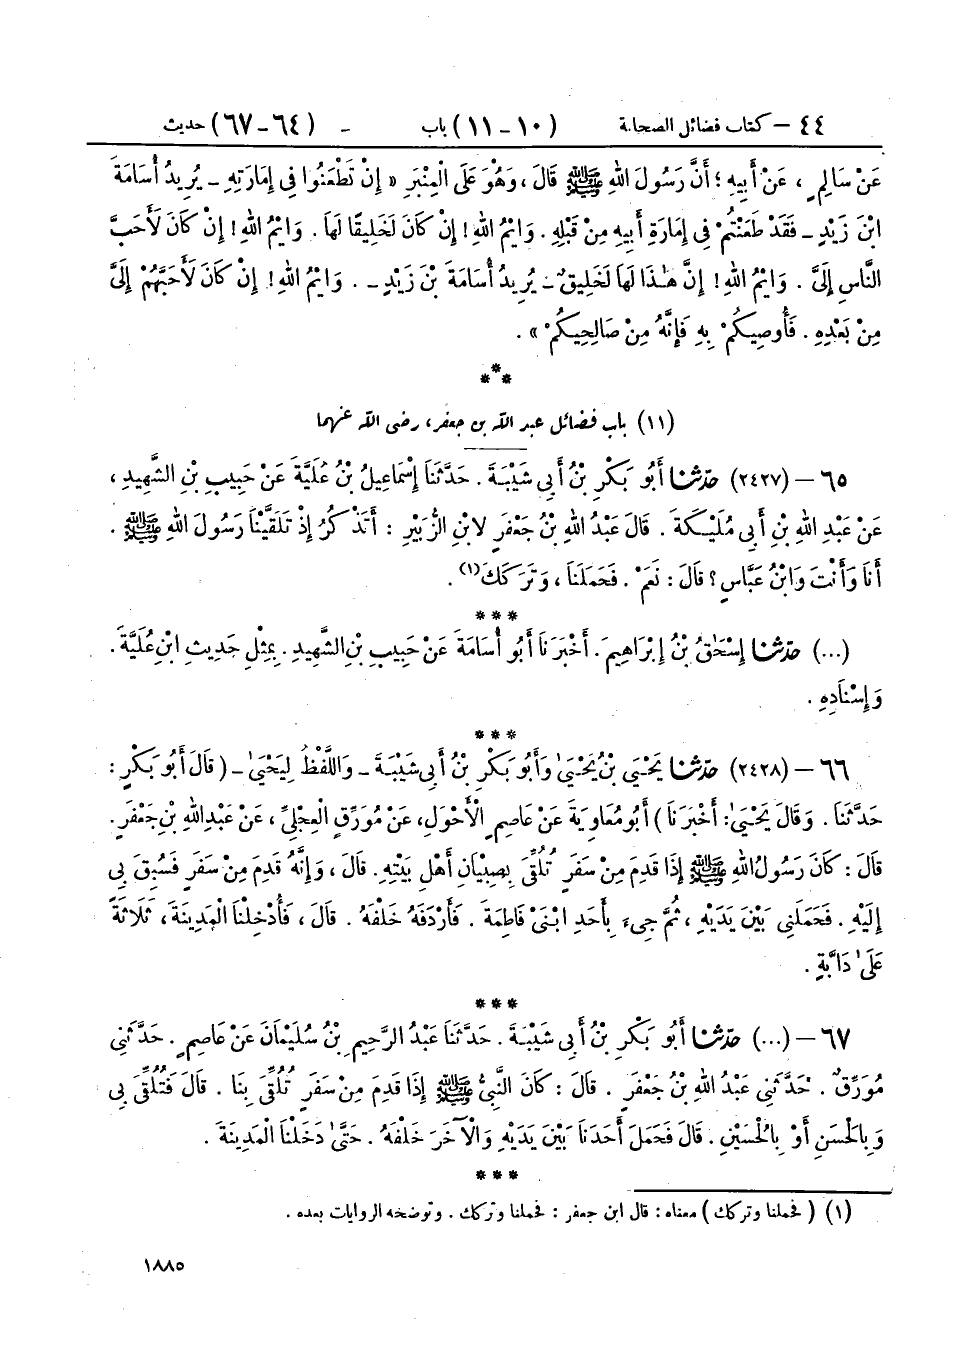 ٤٤ – كتاب فضائل الصحابة (١٠ – ١١) باب – (٦٤ – ٦٧) حديث
عَنْ سَالِمٍ ، عَنْ أَبِيهِ ؛ أَنَّ رَسُولَ اللهِ ﷺ قَالَ ، وَهُوَ عَلَى الْمِنْبَرِ « إِنْ تَطْعَنُوا فِي إِمَارَتِهِ – يُرِيدُ أُسَامَةَ
ابْنَ زَيْدٍ – فَقَدْ طَعَنْتُمْ فِي إِمَارَةِ أَبِيهِ مِنْ قَبْلِهِ . وَايْمُ اللهِ ! إِنْ كَانَ لَخَلِيقًا لَهَا . وَايْمُ اللهِ ! إِنْ كَانَ لَأَحَبَّ
النَّاسِ إِلَىَّ . وَايْمُ اللهِ ! إِنَّ هَٰذَا لَهَا لَخَلِيقٌ – يُرِيدُ أُسَامَةَ بْنَ زَيْدٍ – . وَايْمُ اللهِ ! إِنْ كَانَ لَأَحَبَّهُمْ إِلَىَّ
مِنْ بَعْدِهِ . فَأُوصِيكُمْ بِهِ فَإِنَّهُ مِنْ صَالِحِيكُمْ » .
***
(١١) باب فضائل عبد الله بن جعفر ، رضى الله عنهما
٦٥ – (٢٤٢٧) حدّثنا أَبُو بَكْرِ بْنُ أَبِي شَيْبَةَ . حَدَّثَنَا إِسْمَاعِيلُ بْنُ عُلَيَّةَ عَنْ حَبِيبِ بْنِ الشَّهِيدِ ،
عَنْ عَبْدِ اللهِ بْنِ أَبِي مُلَيْكَةَ . قَالَ عَبْدُ اللهِ بْنُ جَعْفَرٍ لِابْنِ الزُّبَيْرِ : أَتَذْكُرُ إِذْ تَلَقَّيْنَا رَسُولَ اللهِ ﷺ .
أَنَا وَأَنْتَ وَابْنُ عَبَّاسٍ ؟ قَالَ : نَعَمْ . فَحَمَلَنَا ، وَتَرَكَكَ (١) .
***
(...) حدّثنا إِسْحَٰقُ بْنُ إِبْرَاهِيمَ . أَخْبَرَنَا أَبُو أُسَامَةَ عَنْ حَبِيبِ بْنِ الشَّهِيدِ . بِمِثْلِ حَدِيثِ ابْنِ عُلَيَّةَ .
وَإِسْنَادِهِ .
***
٦٦ – (٢٤٢٨) حدّثنا يَحْيَىٰ بْنُ يَحْيَىٰ وَأَبُو بَكْرِ بْنُ أَبِي شَيْبَةَ – وَاللَّفْظُ لِيَحْيَىٰ – ( قَالَ أَبُو بَكْرٍ :
حَدَّثَنَا . وَقَالَ يَحْيَىٰ : أَخْبَرَنَا ) أَبُو مُعَاوِيَةَ عَنْ عَاصِمٍ الْأَحْوَلِ ، عَنْ مُوَرِّقٍ الْعِجْلِيِّ ، عَنْ عَبْدِ اللهِ بْنِ جَعْفَرٍ .
قَالَ : كَانَ رَسُولُ اللهِ ﷺ إِذَا قَدِمَ مِنْ سَفَرٍ تُلُقِّىَ بِصِبْيَانِ أَهْلِ بَيْتِهِ . قَالَ ، وَإِنَّهُ قَدِمَ مِنْ سَفَرٍ فَسُبِقَ بِي
إِلَيْهِ . فَحَمَلَنِي بَيْنَ يَدَيْهِ ، ثُمَّ جِيءَ بِأَحَدِ ابْنَىْ فَاطِمَةَ . فَأَرْدَفَهُ خَلْفَهُ . قَالَ ، فَأُدْخِلْنَا الْمَدِينَةَ ، ثَلَاثَةً
عَلَىٰ دَابَّةٍ .
***
٦٧ – (...) حدّثنا أَبُو بَكْرِ بْنُ أَبِي شَيْبَةَ . حَدَّثَنَا عَبْدُ الرَّحِيمِ بْنُ سُلَيْمَانَ عَنْ عَاصِمٍ . حَدَّثَنِي
مُوَرِّقٌ . حَدَّثَنِي عَبْدُ اللهِ بْنُ جَعْفَرٍ . قَالَ : كَانَ النَّبِيُّ ﷺ إِذَا قَدِمَ مِنْ سَفَرٍ تُلُقِّىَ بِنَا . قَالَ فَتُلُقِّىَ بِي
وَبِالْحَسَنِ أَوْ بِالْحُسَيْنِ . قَالَ فَحَمَلَ أَحَدَنَا بَيْنَ يَدَيْهِ وَالْآخَرَ خَلْفَهُ . حَتَّىٰ دَخَلْنَا الْمَدِينَةَ .
***
(١) ( فحملنا وتركك ) معناه : قال ابن جعفر : فحملنا وتركك . وتوضحه الروايات بعده .
١٨٨٥